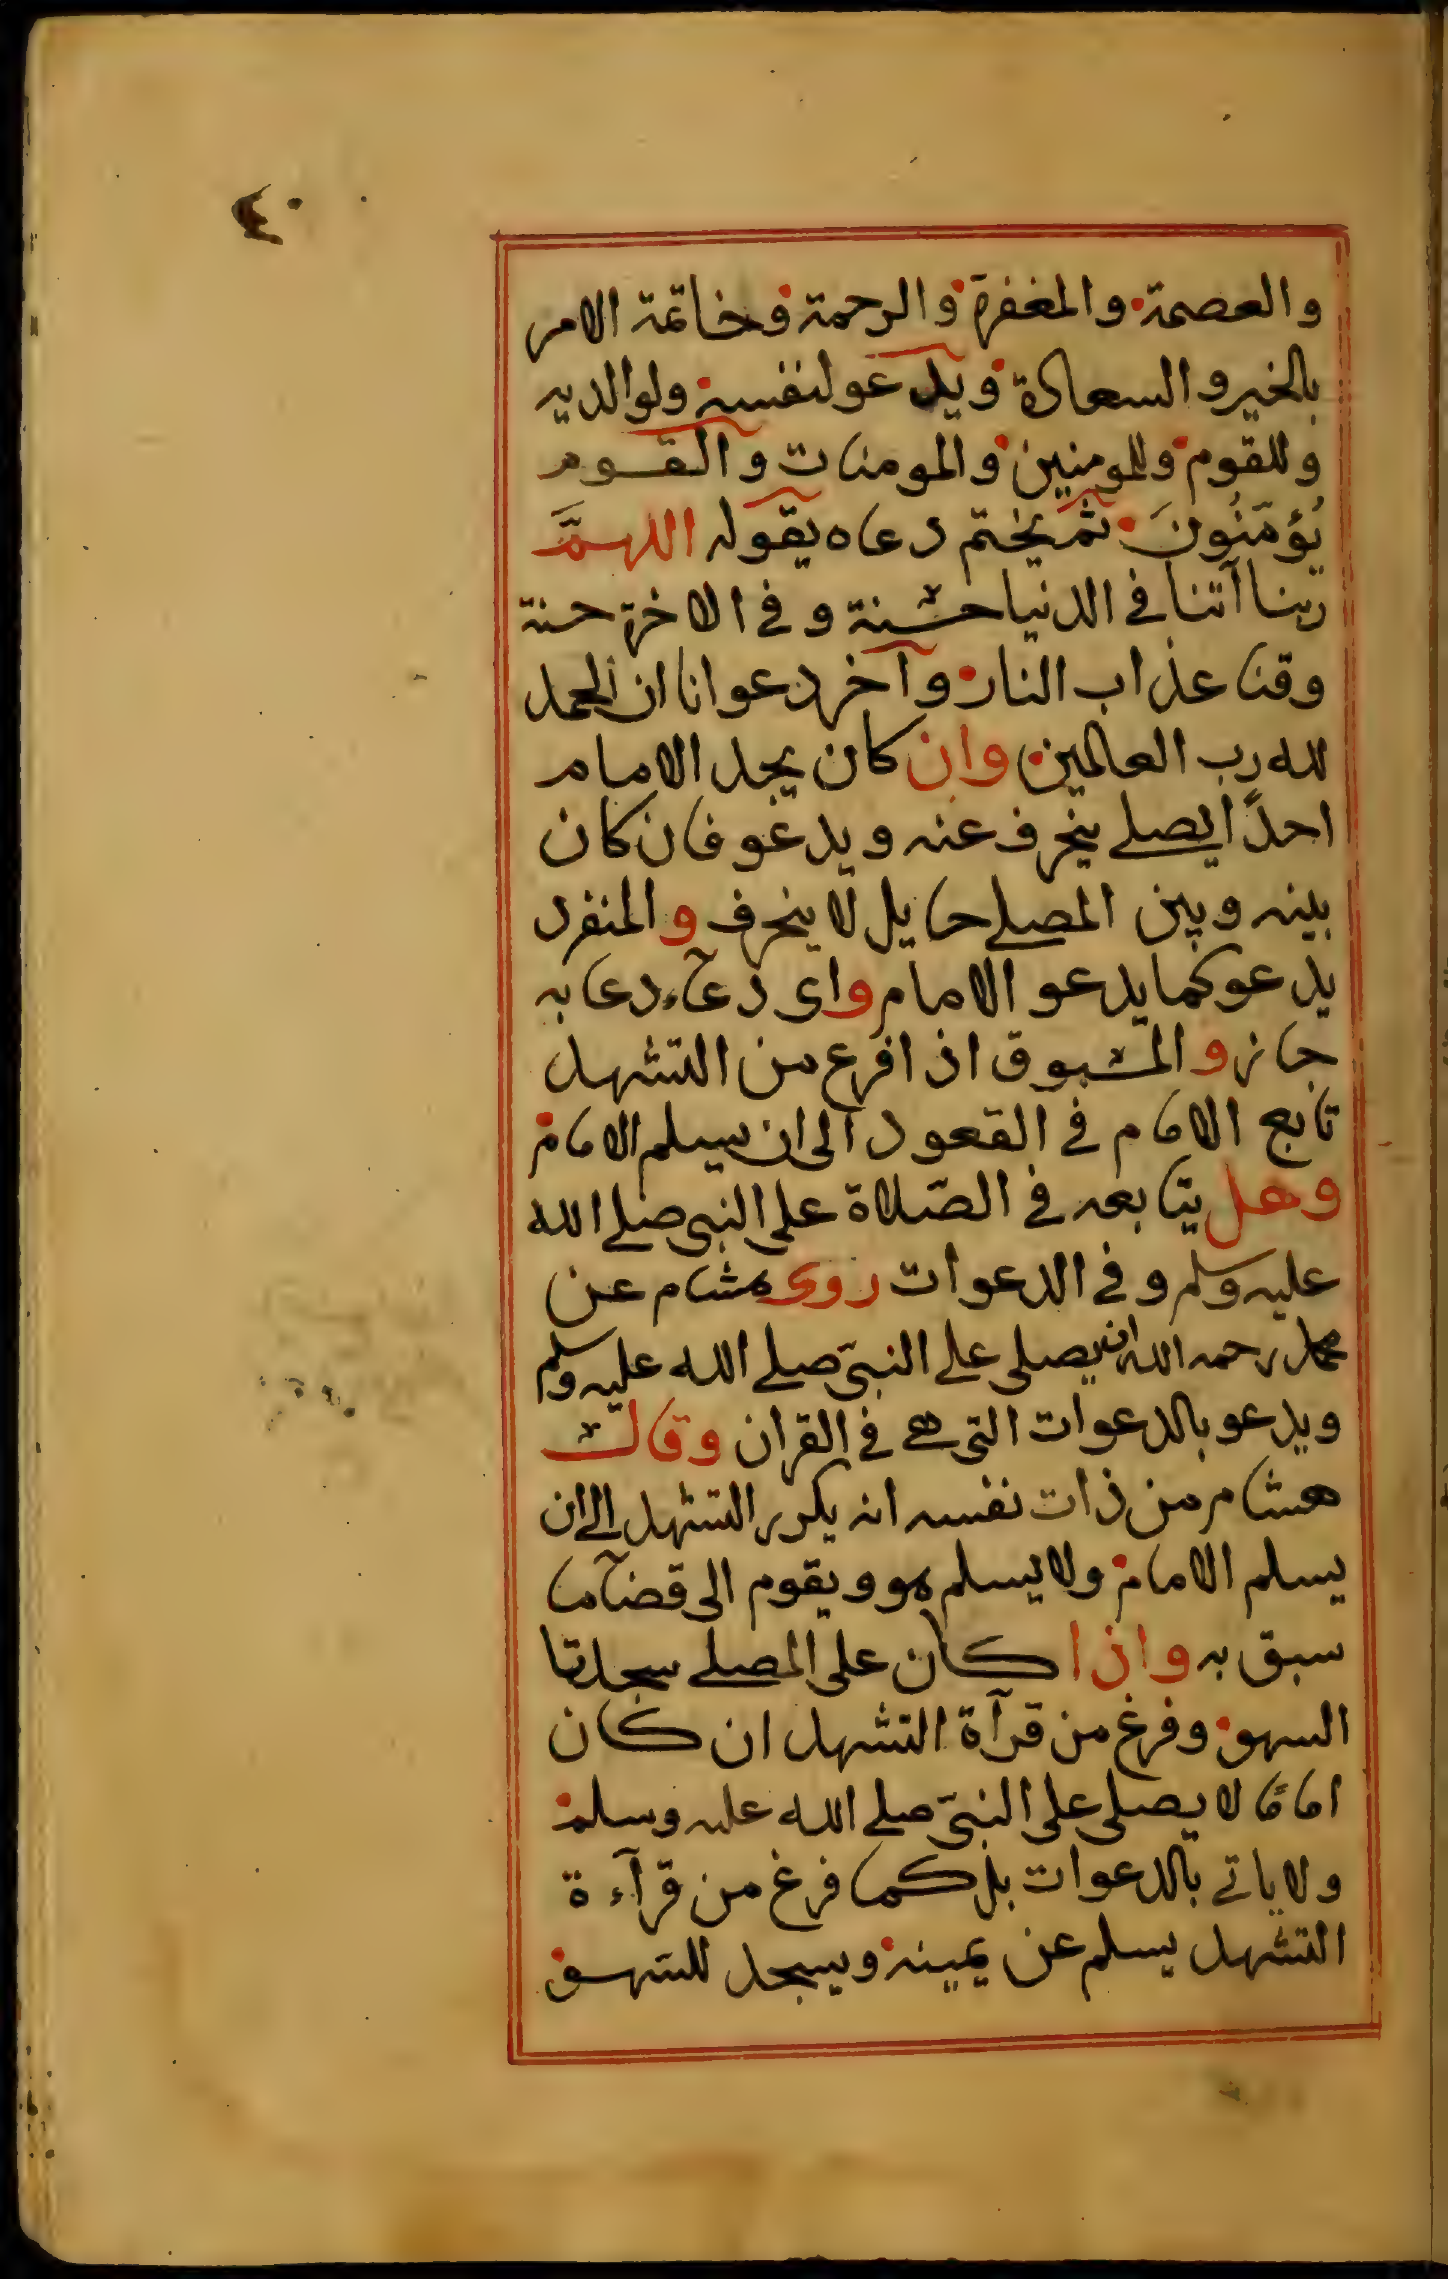 ٤٠
والعصمة والمغفرة والرحمة وخاتمة الامر
بالخير والسعادة ويدعو لنفسه ولوالديه
وللقوم وللمومنين والمومنات والقوم
يُؤمّنُونَ ثم يختم دعاه بقوله اللهمَّ
ربنا آتنا في الدنيا حسنة وفي الاخرة حسنة
وقنا عذاب النار وآخر دعوانا ان الحمد
لله رب العالمين وان كان يجد الامام
احدًا يصلے ينحرف عنه ويدعو فان كان
بينه وبين المصلے حايل لا ينحرف والمنفرد
يدعو كما يدعو الامام واى دعآء دعا به
جاز والمسبوق اذا فرع من التشهد
تابع الامام في القعود الى ان يسلم الامام
وهل يتابعه في الصّلاة على النبى صلے الله
عليه وسلم وفي الدعوات روى هشام عن
محمد رحمه الله انه يصلى على النبىّ صلے الله عليه وسلم
ويدعو بالدعوات التى هے في القران وقال
هشام من ذات نفسه انه يكرر التشهد الى ان
يسلم الامام ولا يسلم هو ويقوم الى قضآ ما
سبق به واذا كان على المصلے سجدتا
السهو وفرغ من قرآة التشهد ان كان
امامًا لا يصلى على النبىّ صلے الله عليه وسلم
ولا ياتے بالدعوات بل كما فرغ من قرآءة
التشهد يسلم عن يمينه ويسجد للسهو